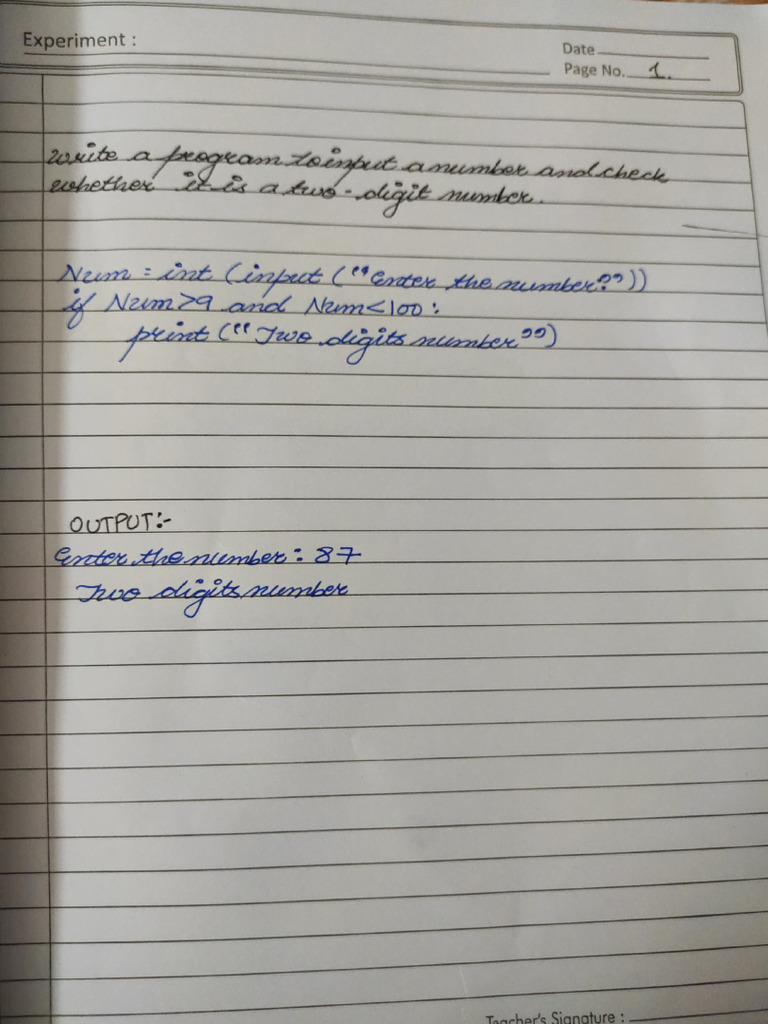 Experiment :
Date
Page No. 1.
write a program to input a number and check
whether it is a two-digit number.
Num = int (input ("Enter the number:"))
if Num>9 and Num<100:
print ("Two digits number")
OUTPUT:-
Enter the number: 87
Two digits number
Teacher's Signature :